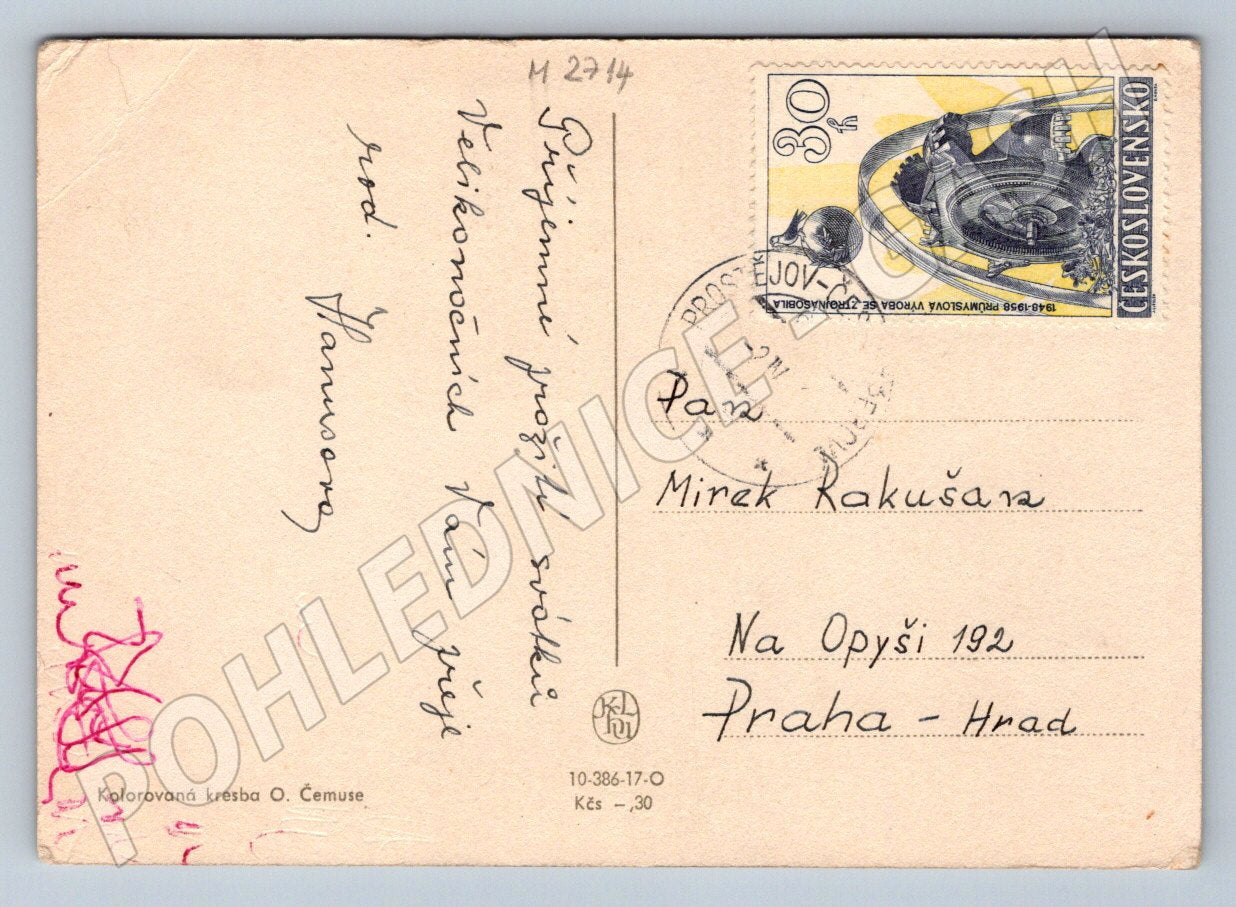 M 2714
Příjemné prožití svátků
Velikonočních Vám přeje
rod. Hanusova
30 h
ČESKOSLOVENSKO
1948-1958 PRŮMYSLOVÁ VÝROBA SE ZTROJNÁSOBILA
Pan
Mirek Rakušan
Na Opyši 192
Praha - Hrad
10-386-17-O
Kčs –,30
Kolorovaná kresba O. Čemuse
POHLEDNICE